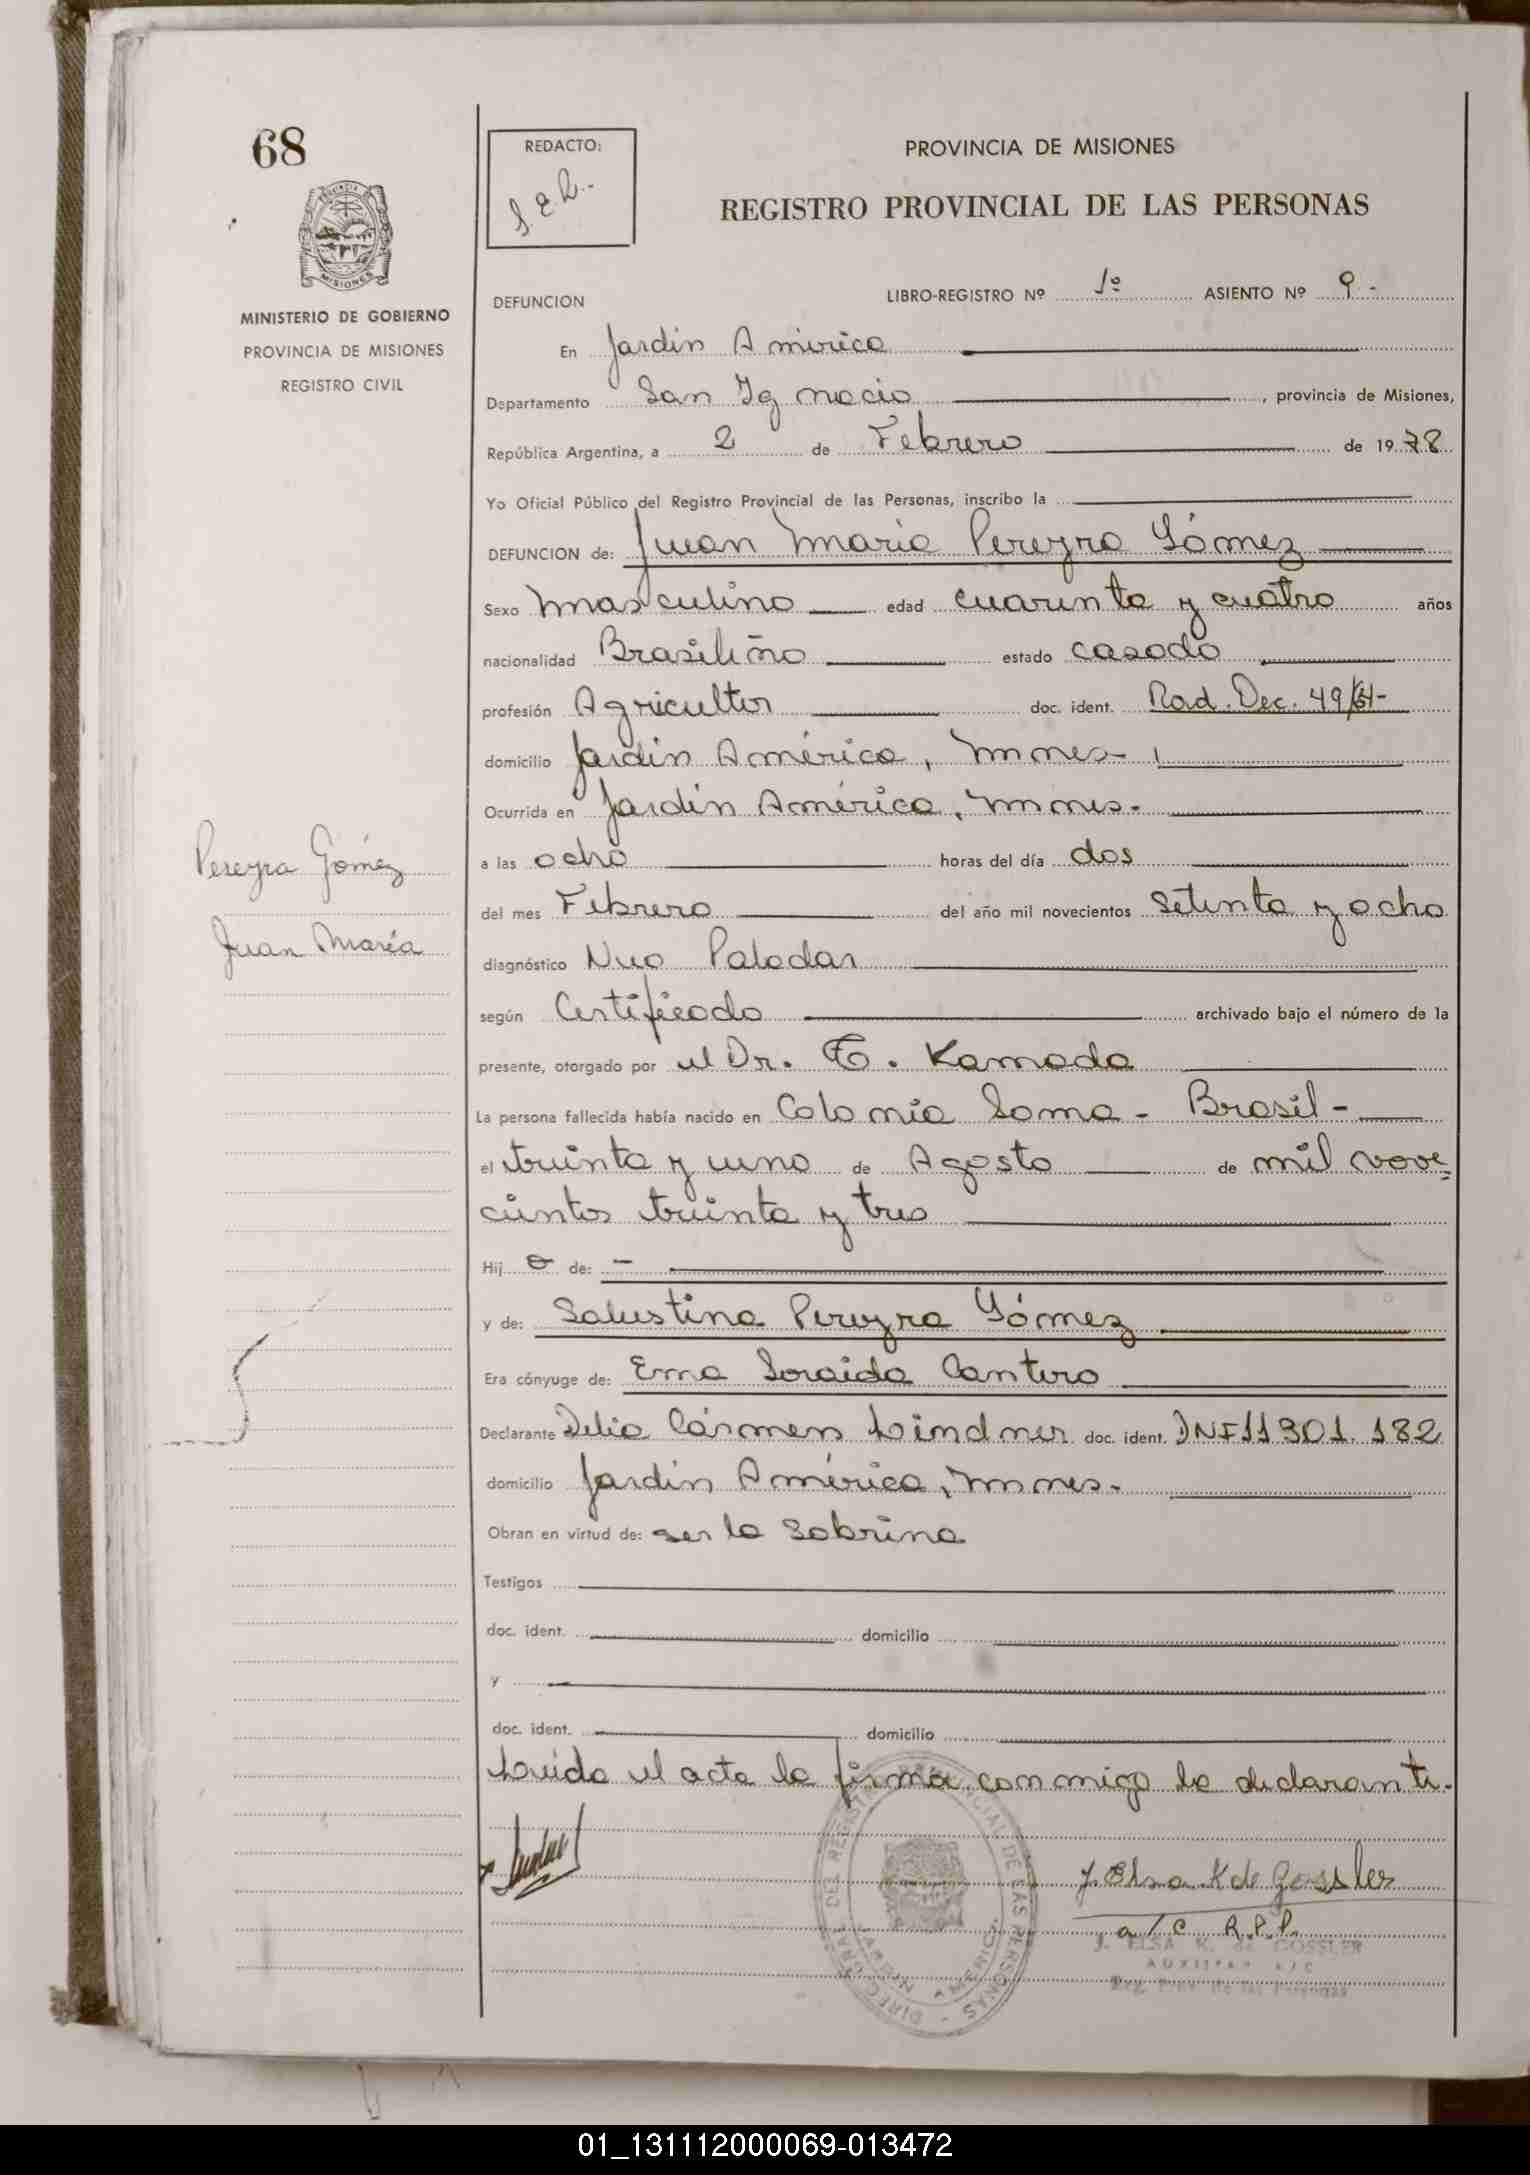 68
REDACTO:
J.E.R.-
PROVINCIA DE MISIONES
REGISTRO PROVINCIAL DE LAS PERSONAS
PROVINCIA DE
MISIONES
MINISTERIO DE GOBIERNO
PROVINCIA DE MISIONES
REGISTRO CIVIL
DEFUNCION LIBRO-REGISTRO Nº 1º ASIENTO Nº 9.-
En Jardín América
Departamento San Ignacio, provincia de Misiones,
República Argentina, a 2 de Febrero de 1978
Yo Oficial Público del Registro Provincial de las Personas, inscribo la
DEFUNCION de: Juan María Pereyra Gómez
Sexo Masculino edad cuarenta y cuatro años
nacionalidad Brasileño estado casado
profesión Agricultor doc. ident. Rad. Dec. 49/64-
domicilio Jardín América, Mnes-
Ocurrida en Jardín América, Mnes.
a las ocho horas del día dos
del mes Febrero del año mil novecientos setenta y ocho
diagnóstico Neo Paladar
según Certificado archivado bajo el número de la
presente, otorgado por el Dr. T. Kamada
La persona fallecida había nacido en Colonia Soma - Brasil -
el treinta y uno de Agosto de mil nove=
cientos treinta y tres
Hij o de: -
y de: Salustina Pereyra Gómez
Era cónyuge de: Erna Soraida Cantero
Declarante Delia Cármen Lindner doc. ident. DNI 11 301. 182
domicilio Jardín América, Mnes.
Obran en virtud de: ser la sobrina
Testigos
doc. ident. domicilio
y
doc. ident. domicilio
Leída el acta la firma conmigo la declarante.
Pereyra Gómez
Juan María
J. Elsa K de Gossler
a/c R.P.P.
J. ELSA K. de GOSSLER
AUXILIAR A/C
Reg. Prov. de las Personas
DIRECC. GRAL. DEL REGISTRO PROVINCIAL DE LAS PERSONAS -
JARDIN AMERICA
01_131112000069-013472